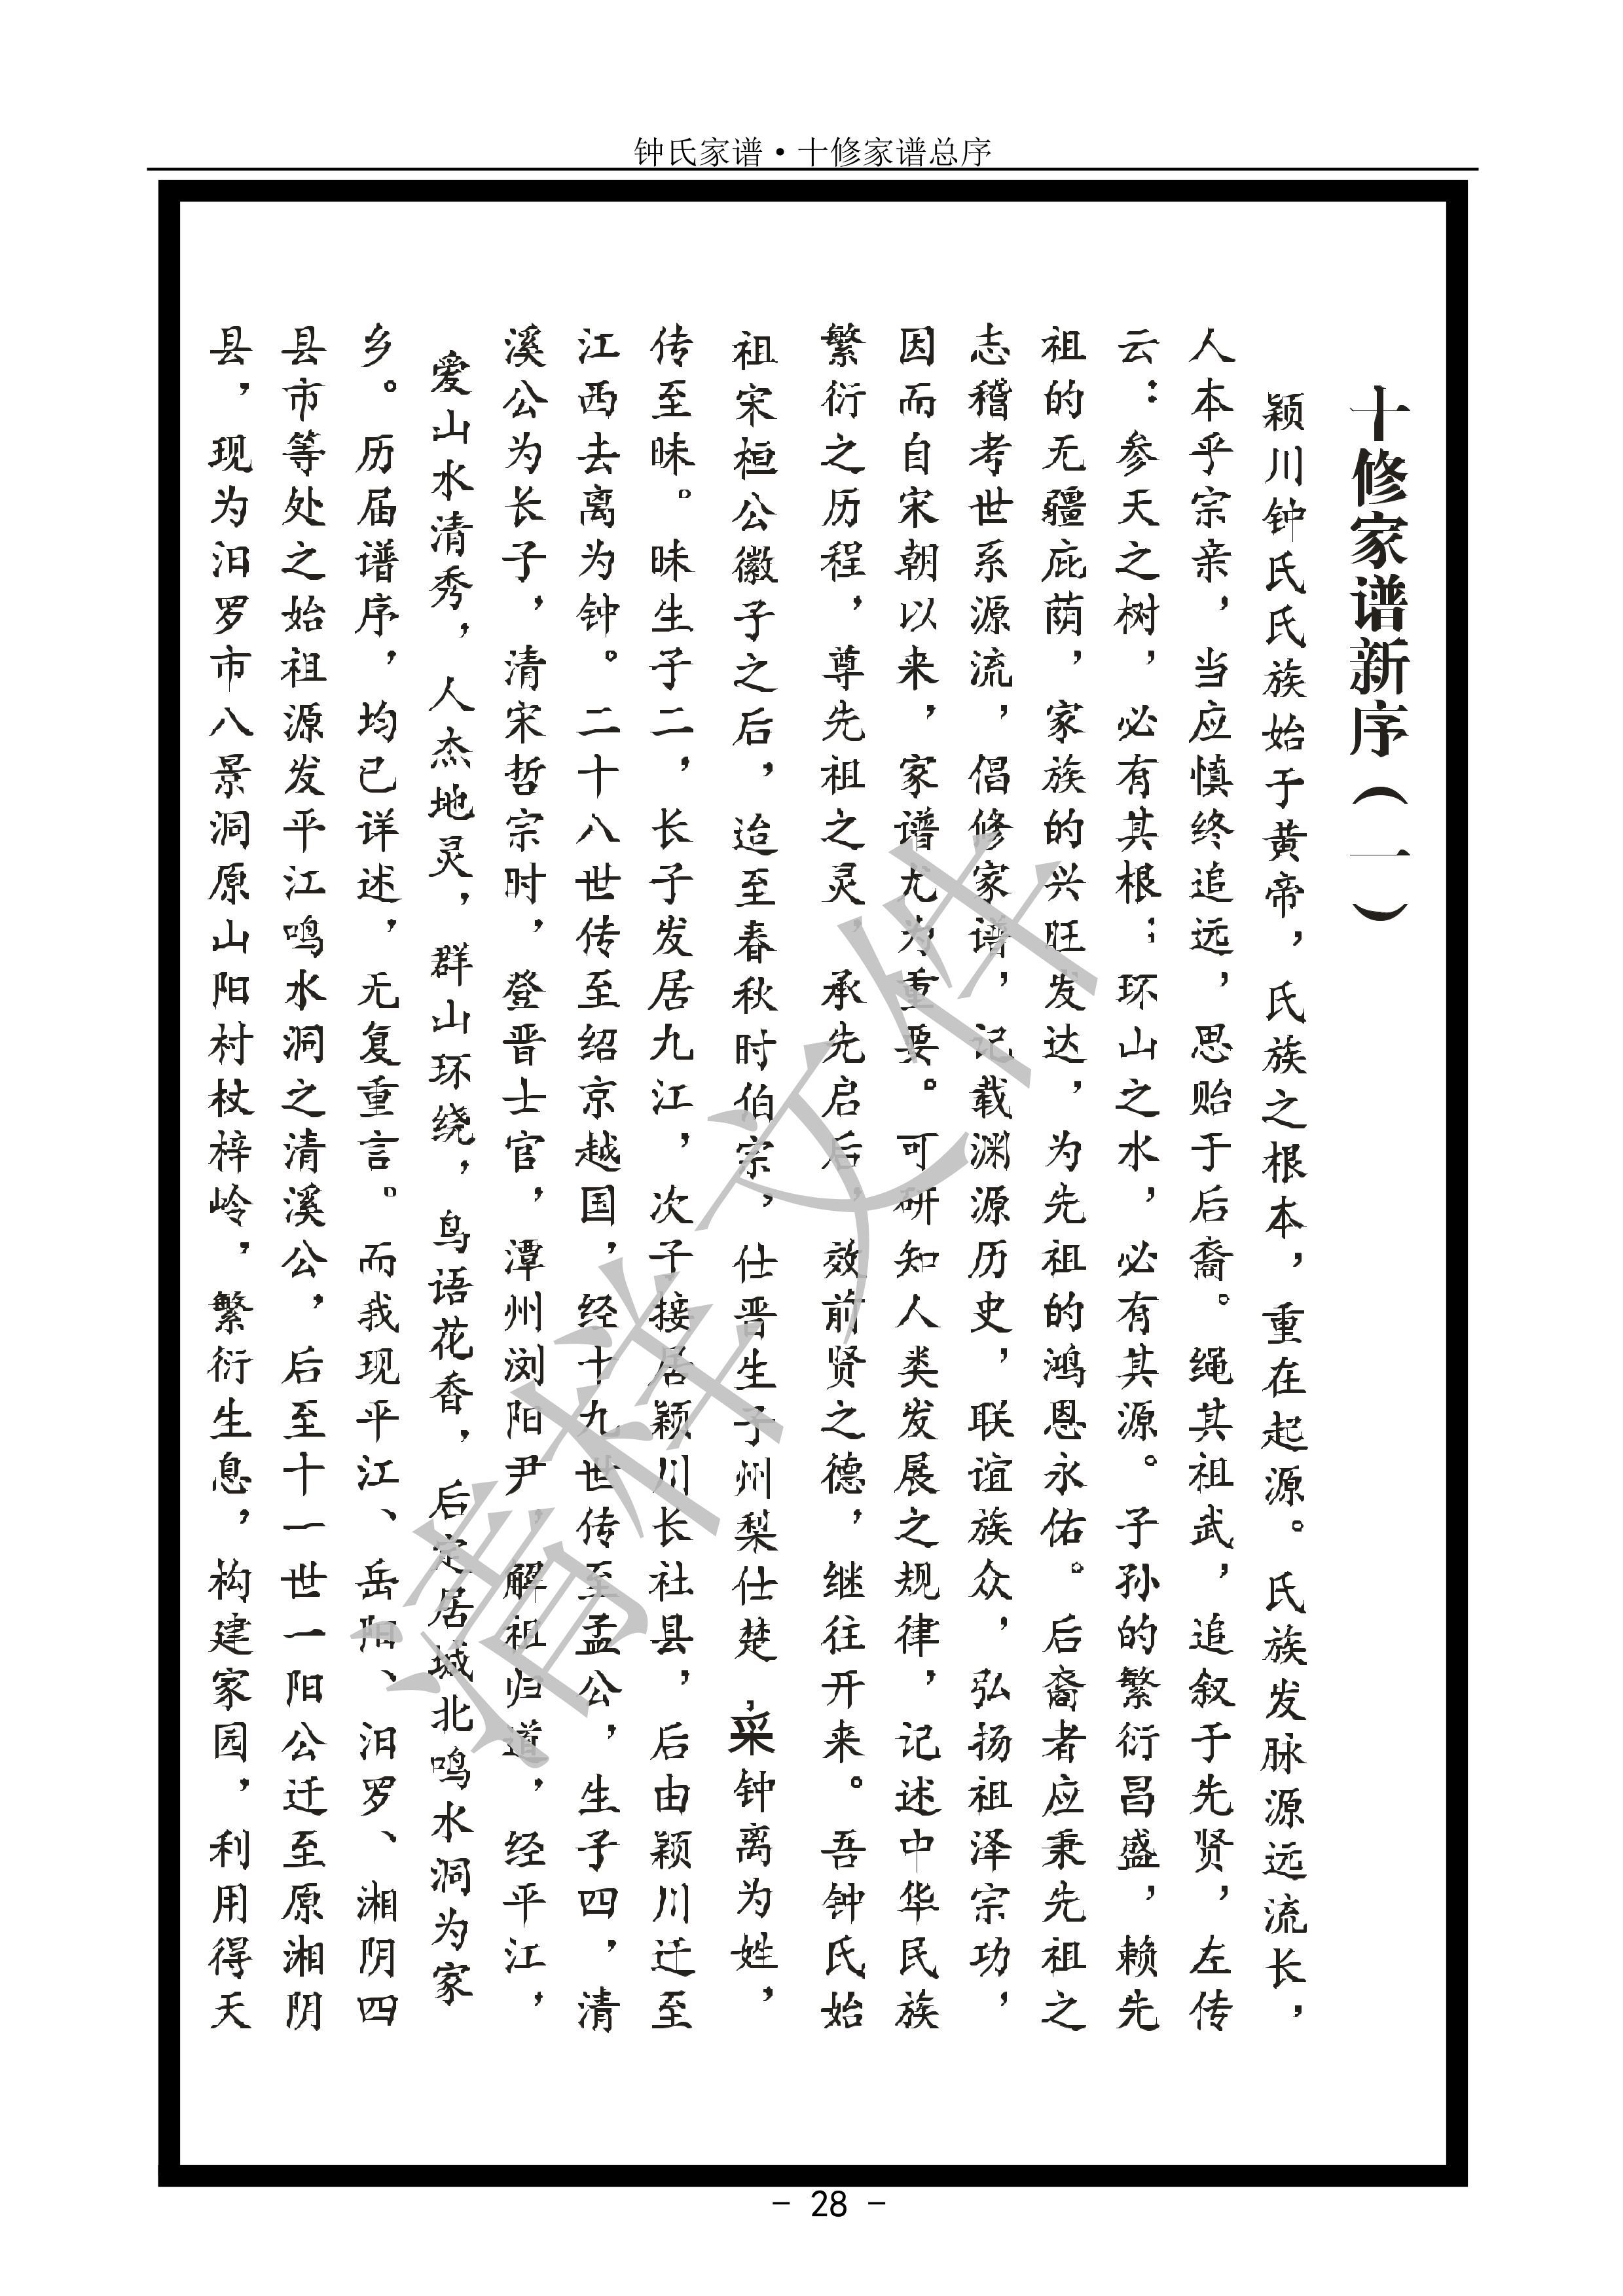 钟氏家谱·十修家谱总序
十修家谱新序（一）
颖川钟氏氏族始于黄帝，氏族之根本，重在起源。氏族发脉源远流长，
人本乎宗亲，当应慎终追远，思贻于后裔。绳其祖武，追叙于先贤，左传
云：参天之树，必有其根；环山之水，必有其源。子孙的繁衍昌盛，赖先
祖的无疆庇荫，家族的兴旺发达，为先祖的鸿恩永佑。后裔者应秉先祖之
志稽考世系源流，倡修家谱，记载渊源历史，联谊族众，弘扬祖泽宗功，
因而自宋朝以来，家谱尤为重要。可研知人类发展之规律，记述中华民族
繁衍之历程，尊先祖之灵，承先启后，效前贤之德，继往开来。吾钟氏始
祖宋桓公徽子之后，迨至春秋时伯宗，仕晋生子州梨仕楚，采钟离为姓，
传至昧。昧生子二，长子发居九江，次子接居颖川长社县，后由颖川迁至
江西去离为钟。二十八世传至绍京越国，经十九世传至孟公，生子四，清
溪公为长子，清宋哲宗时，登晋士官，潭州浏阳尹，解祖归道，经平江，
爱山水清秀，人杰地灵，群山环绕，鸟语花香，后定居城北鸣水洞为家
乡。历届谱序，均已详述，无复重言。而我现平江、岳阳、汨罗、湘阴四
县市等处之始祖源发平江鸣水洞之清溪公，后至十一世一阳公迁至原湘阴
县，现为汨罗市八景洞原山阳村杖梓岭，繁衍生息，构建家园，利用得天
清样文件
- 28 -